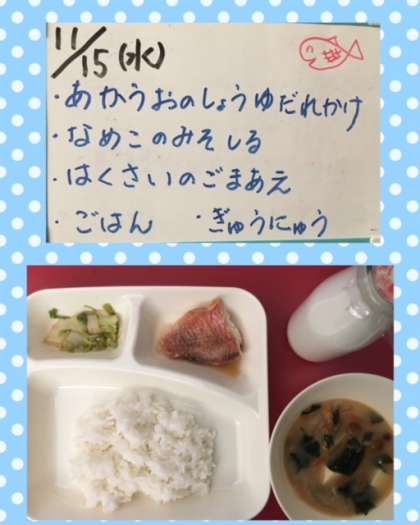 11/15(水)
・あかうおのしょうゆだれかけ
・なめこのみそしる
・はくさいのごまあえ
・ごはん ・ぎゅうにゅう